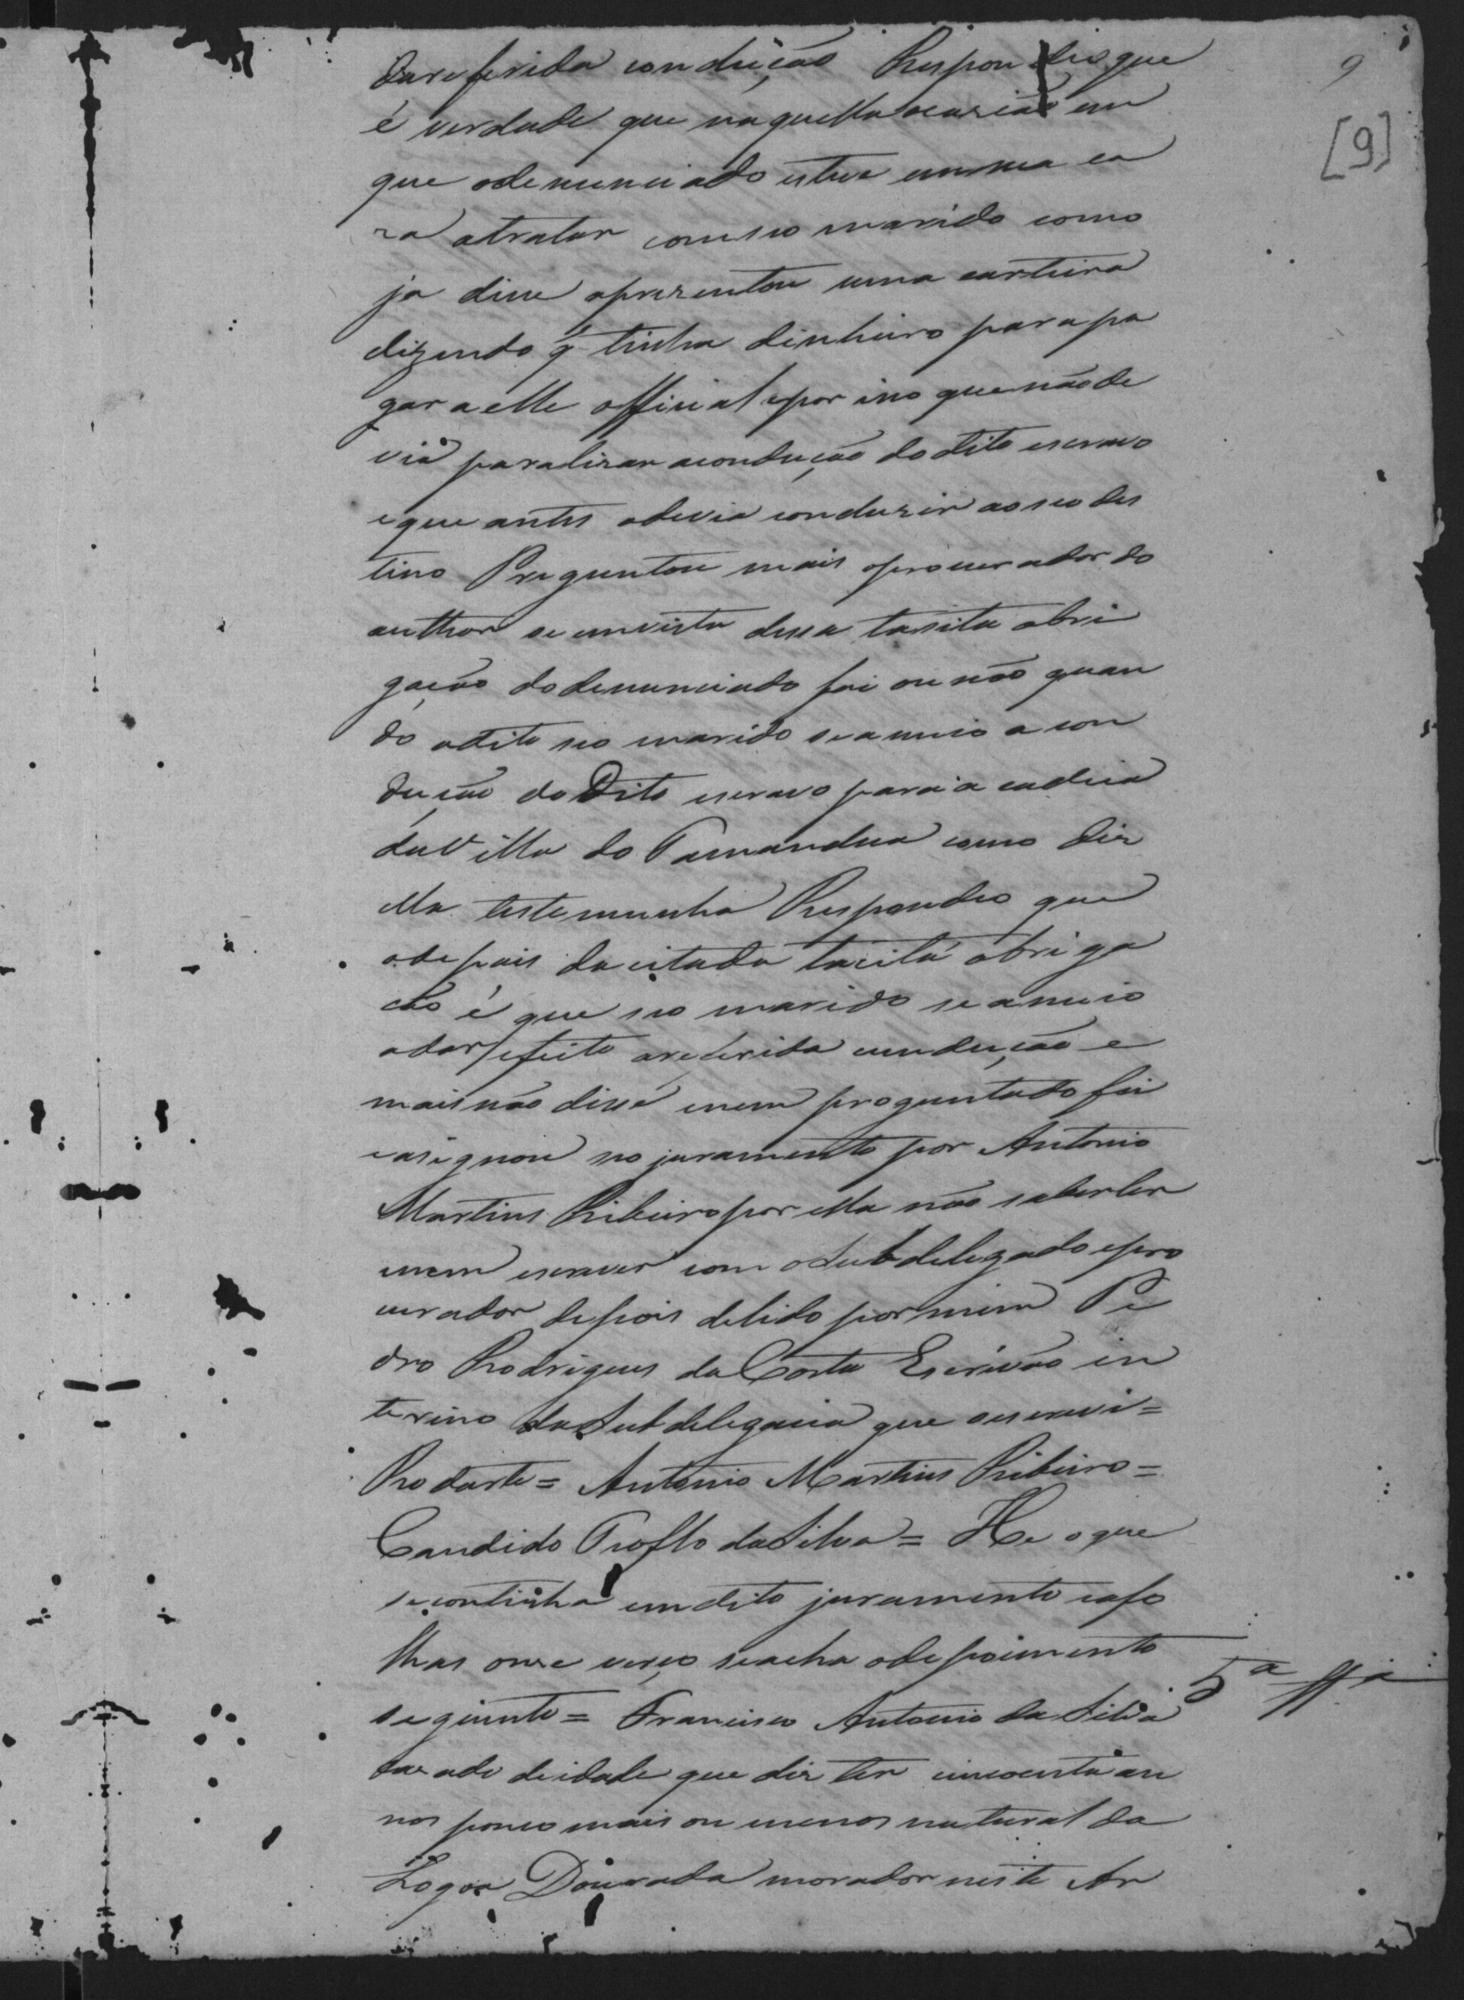 9
[9]
dareferida condução Respondeo que
é verdade que naquella ocazião em
que odenunciado esteve em sua ca
za atratar comseo marido como
ja disse aprezentou uma carteira
dizendo q̃ tinha dinheiro para pa
gar a elle official epor isso que não de
via paralizar acondução do dito escravo
eque antes odevia conduzir ao seo des
tino Preguntou mais oprocurador do
author se em vista dessa tasita obri
gação do denunciado foi ou não quan
do odito seo marido se anuio a con
dução do Dito escravo para a cadeia
da Villa do Tamandua como diz
ella testemunha Respondeo que
odepois da citada tacita obriga
ção é que seo marido se anuio
adar efeito areferida condução e
mais não disse enem proguntado foi
easignou no juramento por Antonio
Martins Ribeiro por ella não saber ler
enem escrever com oSubdelegado epro
curador depois delido por mim Pe
dro Rodrigues da Costa Escrivão in
terino da Subdelegacia que oescrevi=
Rodarte= Antonio Martins Ribeiro=
Candido Profho da Silva= He o que
secontinha em dito juramento eafo
lhas onze verço seacha odepoimento
seguinte= Francisco Antonio da Silva
5ª
cazado deidade que diz ter cincoenta an
nos pouco mais ou menos natural da
Lagoa Dourada morador neste Ar